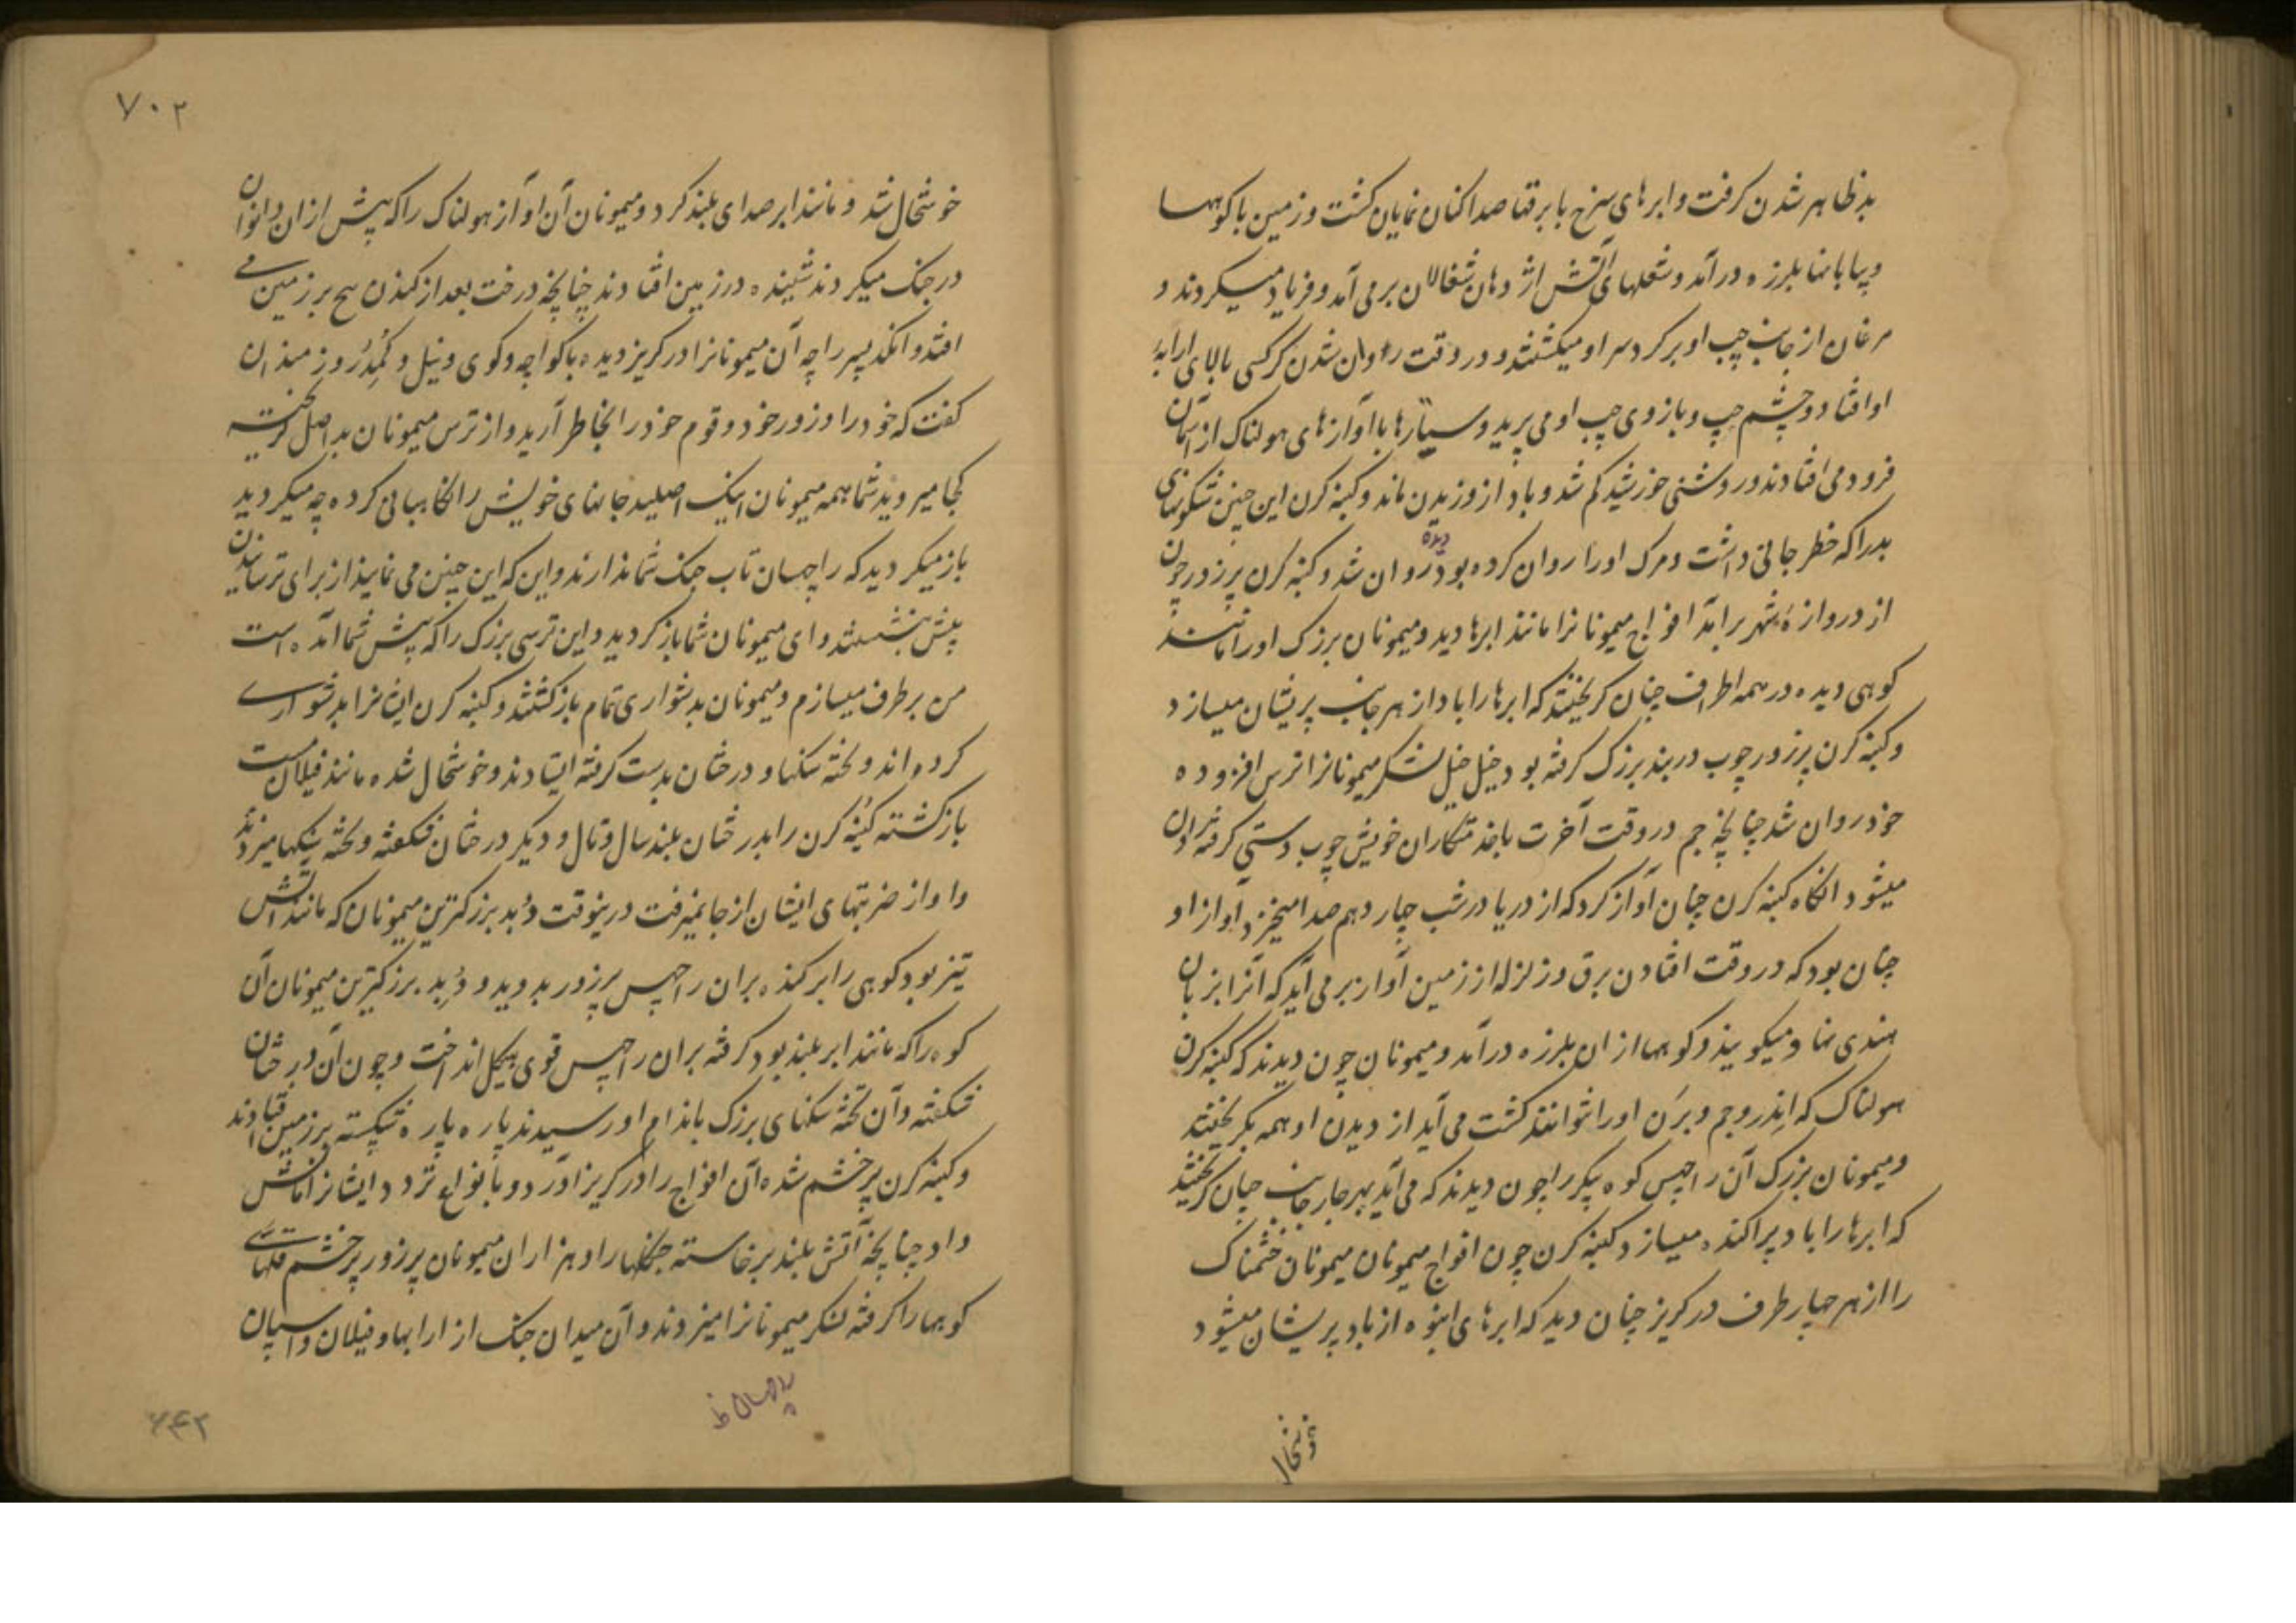 بد ظاهر شدن کرفت و ابرهای سرخ با برقها صدا کنان نمایان کشت و زمین با کوهها
و بیابانها بلرزه درآمد و شعلهای آتش از دهان شغالان برمی آمد و فریاد میکردند و
مرغان از جانب چپ او بر کرد سر او میکشتند و در وقت روان شدن کرکسی بالای ارابهٔ
او افتاد و چشم چپ و بازوی چپ او می پرید و سیّارها با آوازهای هولناک از آسمان
فرود می افتادند و روشنی خورشید کم شد و باد از وزیدن ماند و کنبه کرن این چنین شکونهای
بد را که خطر جانی داشت و مرک او را روان کرده بود دیده روان شد و کنبه کرن پرزور چون
از دروازهٔ شهر برآمد افواج میمونانرا مانند ابرها دید و میمونان بزرک او را مانند
کوهی دیده در همه اطراف چنان کریختند که ابرها را باد از هر جانب پریشان میسازد
و کنبه کرن پرزور چوب دربند بزرک کرفته بود خیل خیل لشکر میمونانرا ترس افزوده
خود روان شد چنانچه جم در وقت آخرت با خدمتکاران خویش چوب دستی کرفته روان
میشود انکاه کنبه کرن چنان آواز کرد که از دریا در شب چاردهم صدا میخیزد و آواز او
چنان بود که در وقت افتادن برق و زلزله از زمین آواز برمی آید که آنرا بزبان
هندی نهاد میکویند و کوهها از ان بلرزه درآمد و میمونان چون دیدند که کنبه کرن
هولناک که اِندر و جم و برَن او را نتوانند کشت می آید از دیدن او همه بکریختند
و میمونان بزرک آن راچهس کوه پیکر را چون دیدند که می آید بهر چار جانب چنان کریختند
که ابرها را باد پراکنده میسازد کنبه کرن چون افواج میمونان میمونان خشمناک
را از هر چهار طرف در کریز چنان دید که ابرهای انبوه از باد پریشان میشود
خوشحال
۷۰۲
خوشحال شد و مانند ابر صدای بلند کرد و میمونان آن آواز هولناک را که پیش از ان دانوان
در جنک میکردند شنیده در زمین افتادند چنانچه درخت بعد از کندن بیخ بر زمین می
افتد و انکد پسر راجه آن میمونانرا در کریز دیده با کواچه و کوی و نیل و کُمِدُ روز میدان
کفت که خود را و زور خود و قوم خود را بخاطر آرید و از ترس میمونان بد اصل کریخته
کجا میروید شما همه میمونان نیک اصلید جانهای خویش را نکاهبانی کرده چه میکردید
باز میکردید که راچهسان تاب جنک شما ندارند و این که این چنین می نمایند از برای ترسانیدن
پیش نشستند و ای میمونان شما باز کردید و این ترسی بزرک را که پیش شما آمده است
من برطرف میسازم و میمونان بدشواری تمام بازکشتند و کنبه کرن ایشانرا بدشواری
کرد واند و تخته سنکها و درختان بدست کرفته ایستادند و خوشحال شده مانند فیلان مست
بازکشته کنبه کرن را بدرختان بلند سال و تال و دیکر درختان شکفته و تخته سنکها میزدند
و او از ضربتهای ایشان از جا نمیرفت درینوقت دُبِد بزرکترین میمونان که مانند آتش
تیز بود کوهی را برکنده بران راچهس پرزور بدوید و دُبِد بزرکترین میمونان آن
کوه را که مانند ابر بلند بود کرفته بران راچهس قوی هیکل انداخت و چون آن درختان
شکفته و آن تخته سنکهای بزرک باندام او رسیدند پاره پاره شکسته بر زمین افتادند
و کنبه کرن پر خشم شده آن افواج را در کریز آورد و بانواع تردد ایشانرا مالش
داد چنانچه آتش بلند برخاسته جنکلها را و هزاران میمونان پرزور پر خشم قلهای
کوهها را کرفته لشکر میمونانرا میزدند و آن میدان جنک از ارابها و فیلان و اسپان
راچهسان ظ
۶۴۲